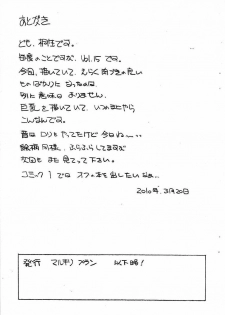 あとがき
ども、桐生です。
毎度のことですが、Vol.15です。
今回、描いていて、えらく肉づきの良い
ものばかりになったのは、
別に意味はありません。
巨乳を描いていて、いつのまにやら
こんなんです。
昔はロリもやってたけど今日ね…
絵柄同様、ふらふらしてますが
次回もまた見て下さい。
コミック1ではスク水本を出したいなぁ…
2010年3月20日
発行 マルモリプラン 以下略!